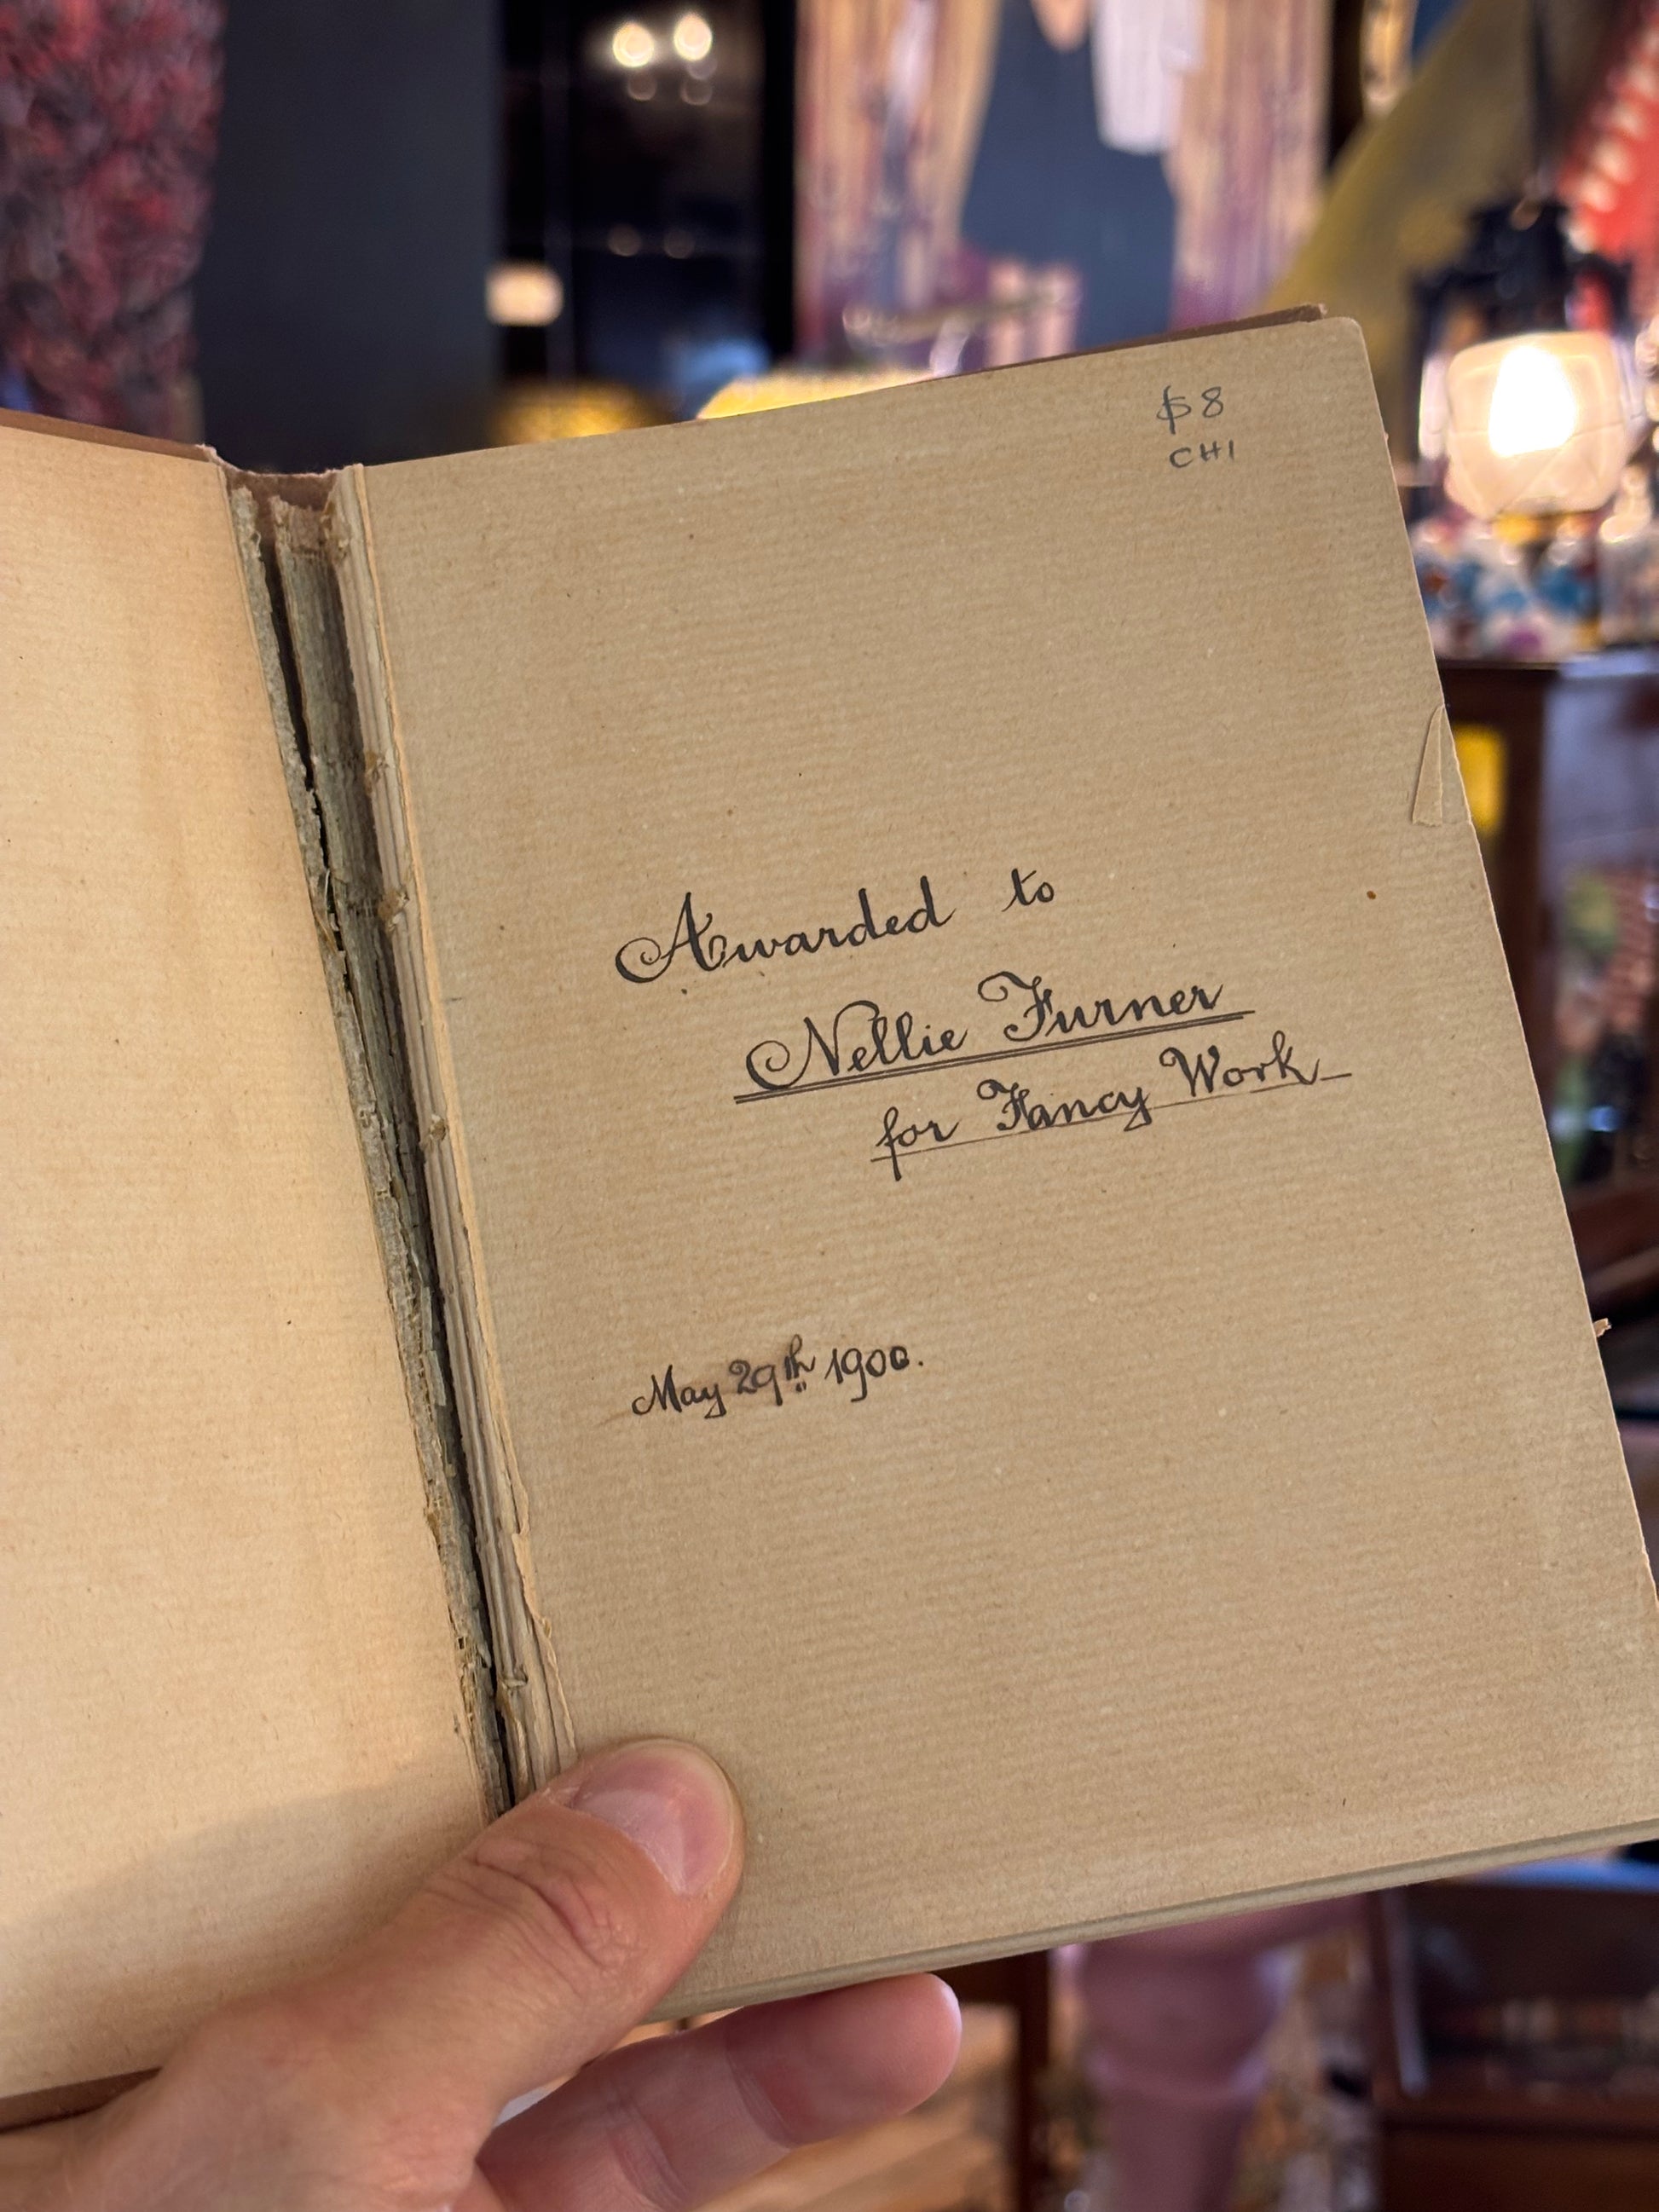 $8
CH1
Awarded to
Nellie Furner
for Fancy Work
May 29th 1900.